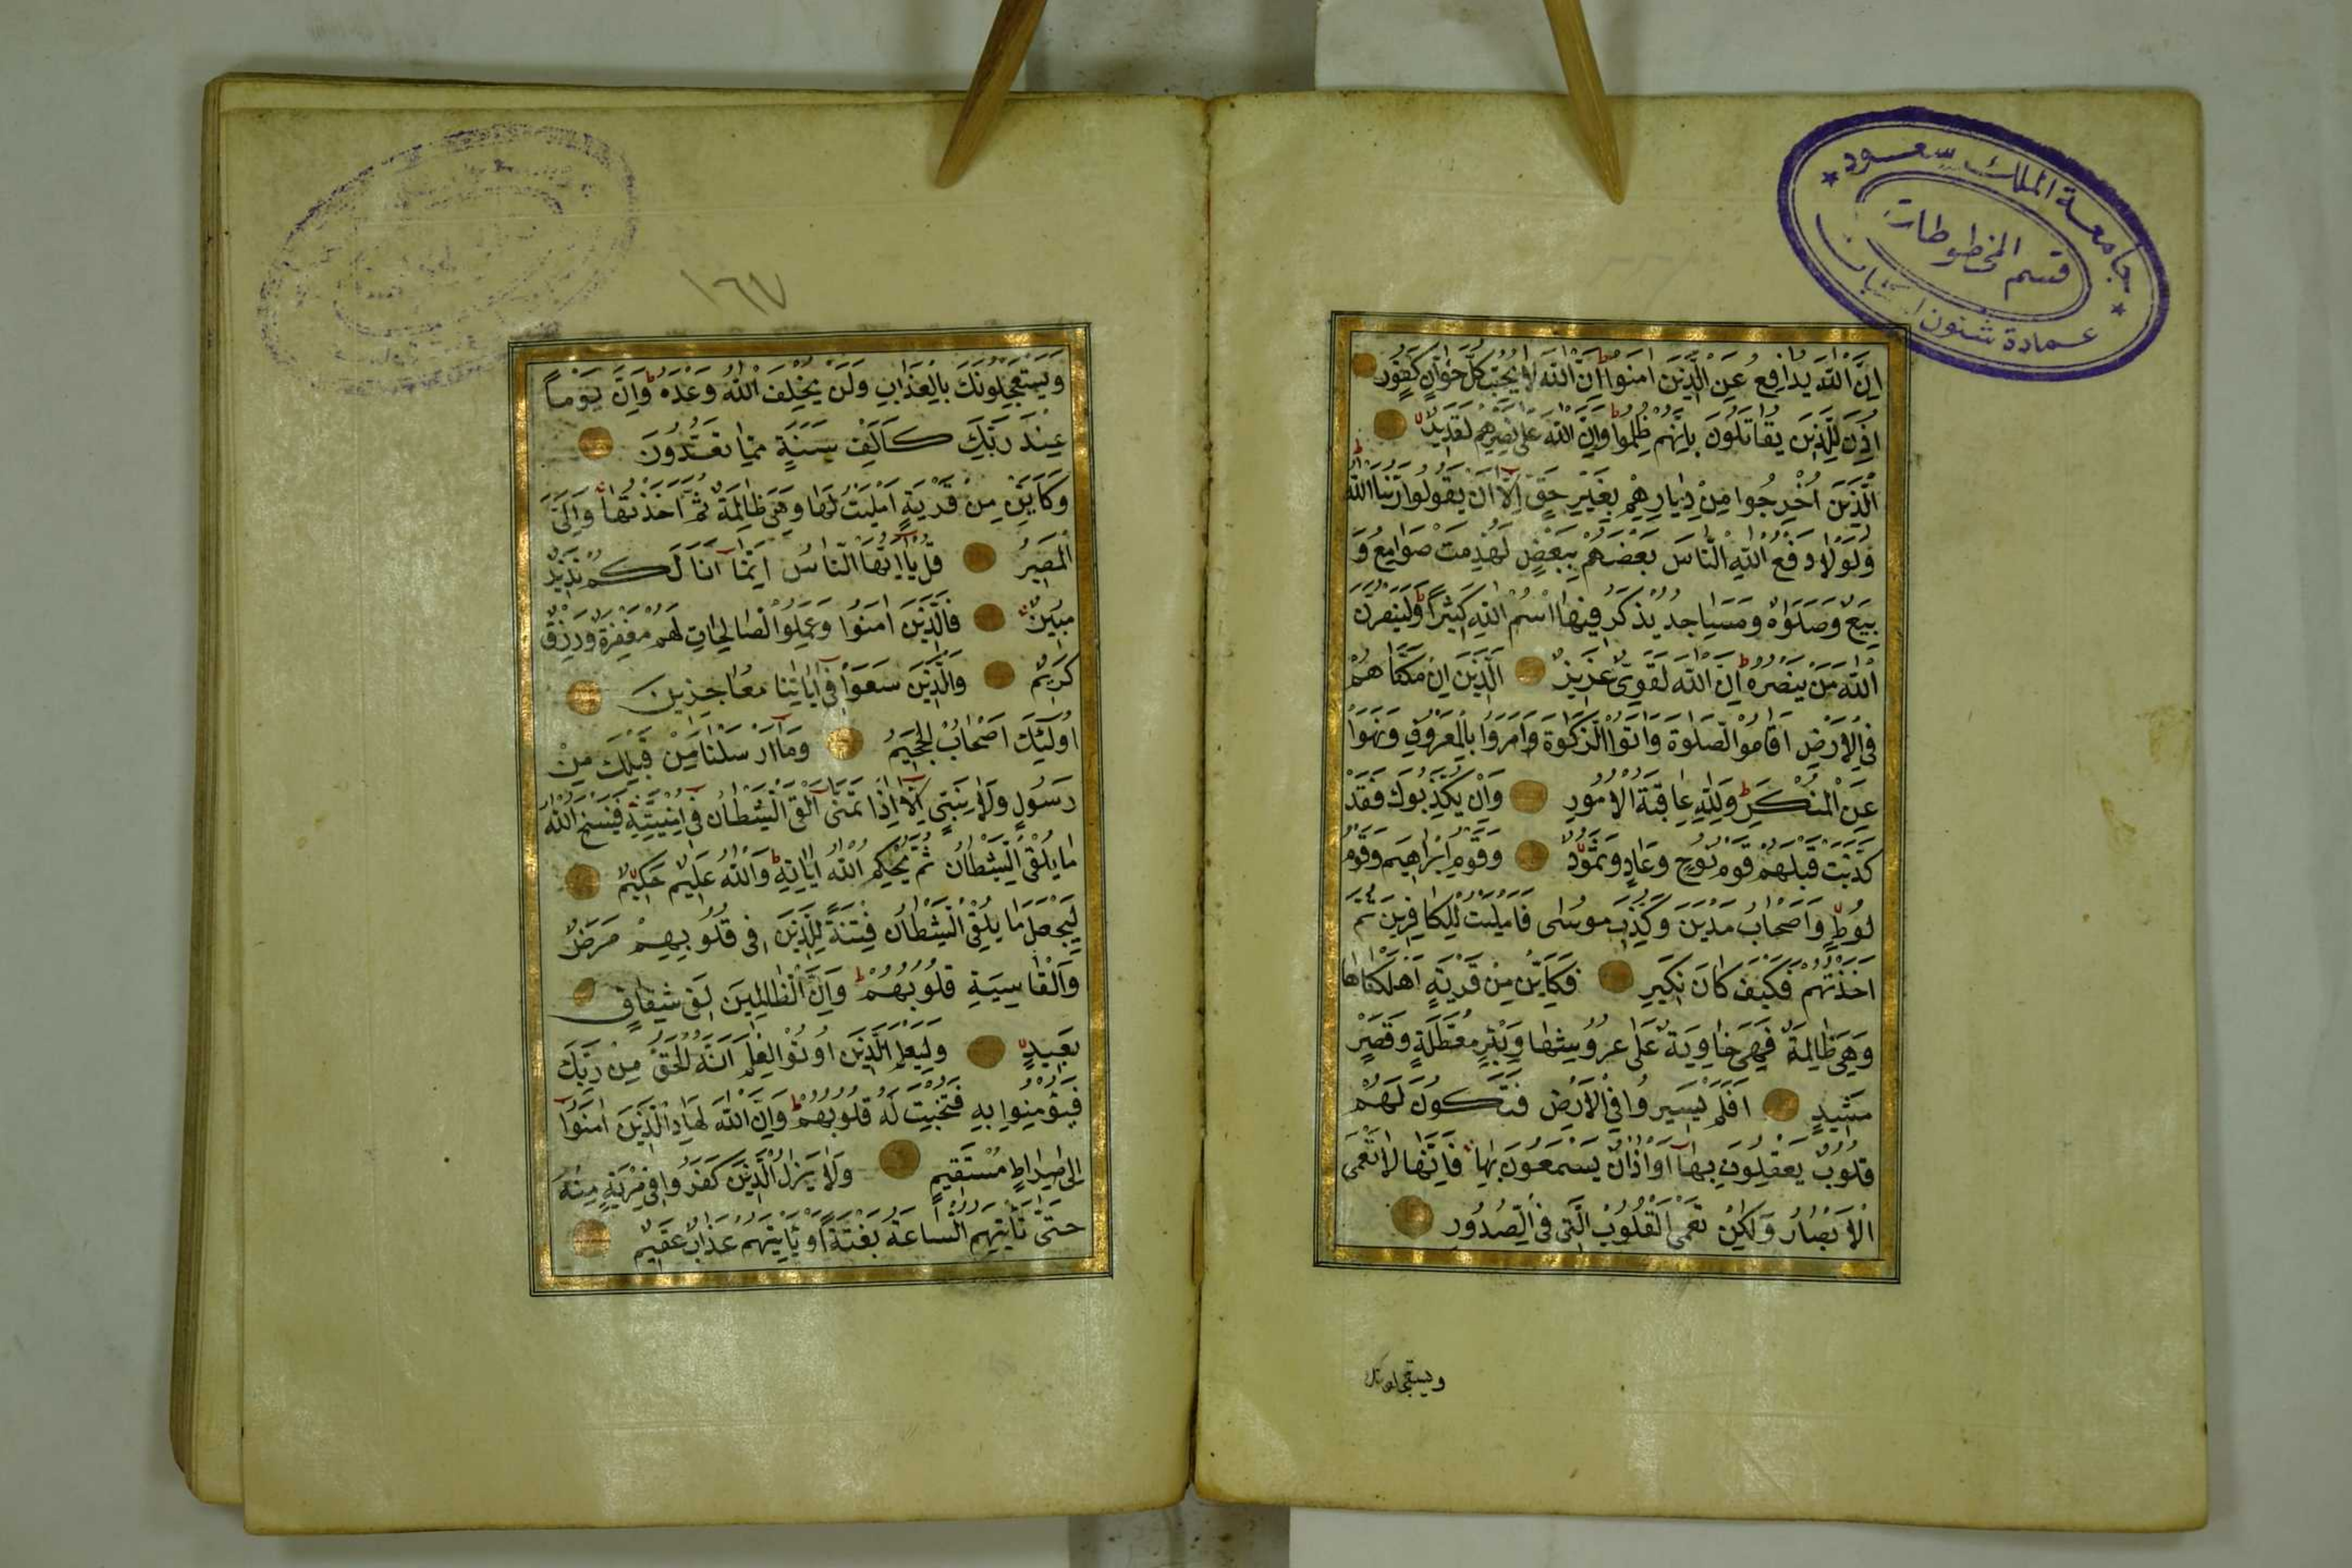 جامعة الملك سعود
قسم المخطوطات
عمادة شئون المكتبات
اِنَّ اللّٰهَ يُدَافِعُ عَنِ الَّذِينَ اٰمَنُوا اِنَّ اللّٰهَ لَا يُحِبُّ كُلَّ خَوَّانٍ كَفُورٍ
اُذِنَ لِلَّذِينَ يُقَاتَلُونَ بِاَنَّهُمْ ظُلِمُوا وَاِنَّ اللّٰهَ عَلٰى نَصْرِهِمْ لَقَدِيرٌ
الَّذِينَ اُخْرِجُوا مِنْ دِيَارِهِمْ بِغَيْرِ حَقٍّ اِلَّا اَنْ يَقُولُوا رَبُّنَا اللّٰهُ
وَلَوْلَا دَفْعُ اللّٰهِ النَّاسَ بَعْضَهُمْ بِبَعْضٍ لَهُدِمَتْ صَوَامِعُ وَ
بِيَعٌ وَصَلَوَاةٌ وَمَسَاجِدُ يُذْكَرُ فِيهَا اسْمُ اللّٰهِ كَثِيرًا وَلَيَنْصُرَنَّ
اللّٰهُ مَنْ يَنْصُرُهُ اِنَّ اللّٰهَ لَقَوِيٌّ عَزِيزٌ اَلَّذِينَ اِنْ مَكَّنَّاهُمْ
فِي الْاَرْضِ اَقَامُوا الصَّلٰوةَ وَاٰتَوُا الزَّكٰوةَ وَاَمَرُوا بِالْمَعْرُوفِ وَنَهَوْا
عَنِ الْمُنْكَرِ وَلِلّٰهِ عَاقِبَةُ الْاُمُورِ وَاِنْ يُكَذِّبُوكَ فَقَدْ
كَذَّبَتْ قَبْلَهُمْ قَوْمُ نُوحٍ وَعَادٌ وَثَمُودُ وَقَوْمُ اِبْرَاهِيمَ وَقَوْمُ
لُوطٍ وَاَصْحَابُ مَدْيَنَ وَكُذِّبَ مُوسٰى فَاَمْلَيْتُ لِلْكَافِرِينَ ثُمَّ
اَخَذْتُهُمْ فَكَيْفَ كَانَ نَكِيرِ فَكَاَيِّنْ مِنْ قَرْيَةٍ اَهْلَكْنَاهَا
وَهِيَ ظَالِمَةٌ فَهِيَ خَاوِيَةٌ عَلٰى عُرُوشِهَا وَبِئْرٍ مُعَطَّلَةٍ وَقَصْرٍ
مَشِيدٍ اَفَلَمْ يَسِيرُوا فِي الْاَرْضِ فَتَكُونَ لَهُمْ
قُلُوبٌ يَعْقِلُونَ بِهَا اَوْ اٰذَانٌ يَسْمَعُونَ بِهَا فَاِنَّهَا لَا تَعْمَى
الْاَبْصَارُ وَلٰكِنْ تَعْمَى الْقُلُوبُ الَّتِي فِي الصُّدُورِ
ويستعجلونك
١٦٧
وَيَسْتَعْجِلُونَكَ بِالْعَذَابِ وَلَنْ يُخْلِفَ اللّٰهُ وَعْدَهُ وَاِنَّ يَوْمًا
عِنْدَ رَبِّكَ كَاَلْفِ سَنَةٍ مِمَّا تَعُدُّونَ
وَكَاَيِّنْ مِنْ قَرْيَةٍ اَمْلَيْتُ لَهَا وَهِيَ ظَالِمَةٌ ثُمَّ اَخَذْتُهَا وَاِلَيَّ
الْمَصِيرُ قُلْ يَا اَيُّهَا النَّاسُ اِنَّمَا اَنَا لَكُمْ نَذِيرٌ
مُبِينٌ فَالَّذِينَ اٰمَنُوا وَعَمِلُوا الصَّالِحَاتِ لَهُمْ مَغْفِرَةٌ وَرِزْقٌ
كَرِيمٌ وَالَّذِينَ سَعَوْا فِي اٰيَاتِنَا مُعَاجِزِينَ
اُولٰئِكَ اَصْحَابُ الْجَحِيمِ وَمَا اَرْسَلْنَا مِنْ قَبْلِكَ مِنْ
رَسُولٍ وَلَا نَبِيٍّ اِلَّا اِذَا تَمَنّٰى اَلْقَى الشَّيْطَانُ فِي اُمْنِيَّتِهِ فَيَنْسَخُ اللّٰهُ
مَا يُلْقِي الشَّيْطَانُ ثُمَّ يُحْكِمُ اللّٰهُ اٰيَاتِهِ وَاللّٰهُ عَلِيمٌ حَكِيمٌ
لِيَجْعَلَ مَا يُلْقِي الشَّيْطَانُ فِتْنَةً لِلَّذِينَ فِي قُلُوبِهِمْ مَرَضٌ
وَالْقَاسِيَةِ قُلُوبُهُمْ وَاِنَّ الظَّالِمِينَ لَفِي شِقَاقٍ
بَعِيدٍ وَلِيَعْلَمَ الَّذِينَ اُوتُوا الْعِلْمَ اَنَّهُ الْحَقُّ مِنْ رَبِّكَ
فَيُؤْمِنُوا بِهِ فَتُخْبِتَ لَهُ قُلُوبُهُمْ وَاِنَّ اللّٰهَ لَهَادِ الَّذِينَ اٰمَنُوا
اِلٰى صِرَاطٍ مُسْتَقِيمٍ وَلَا يَزَالُ الَّذِينَ كَفَرُوا فِي مِرْيَةٍ مِنْهُ
حَتّٰى تَاْتِيَهُمُ السَّاعَةُ بَغْتَةً اَوْ يَاْتِيَهُمْ عَذَابُ عَقِيمٌ